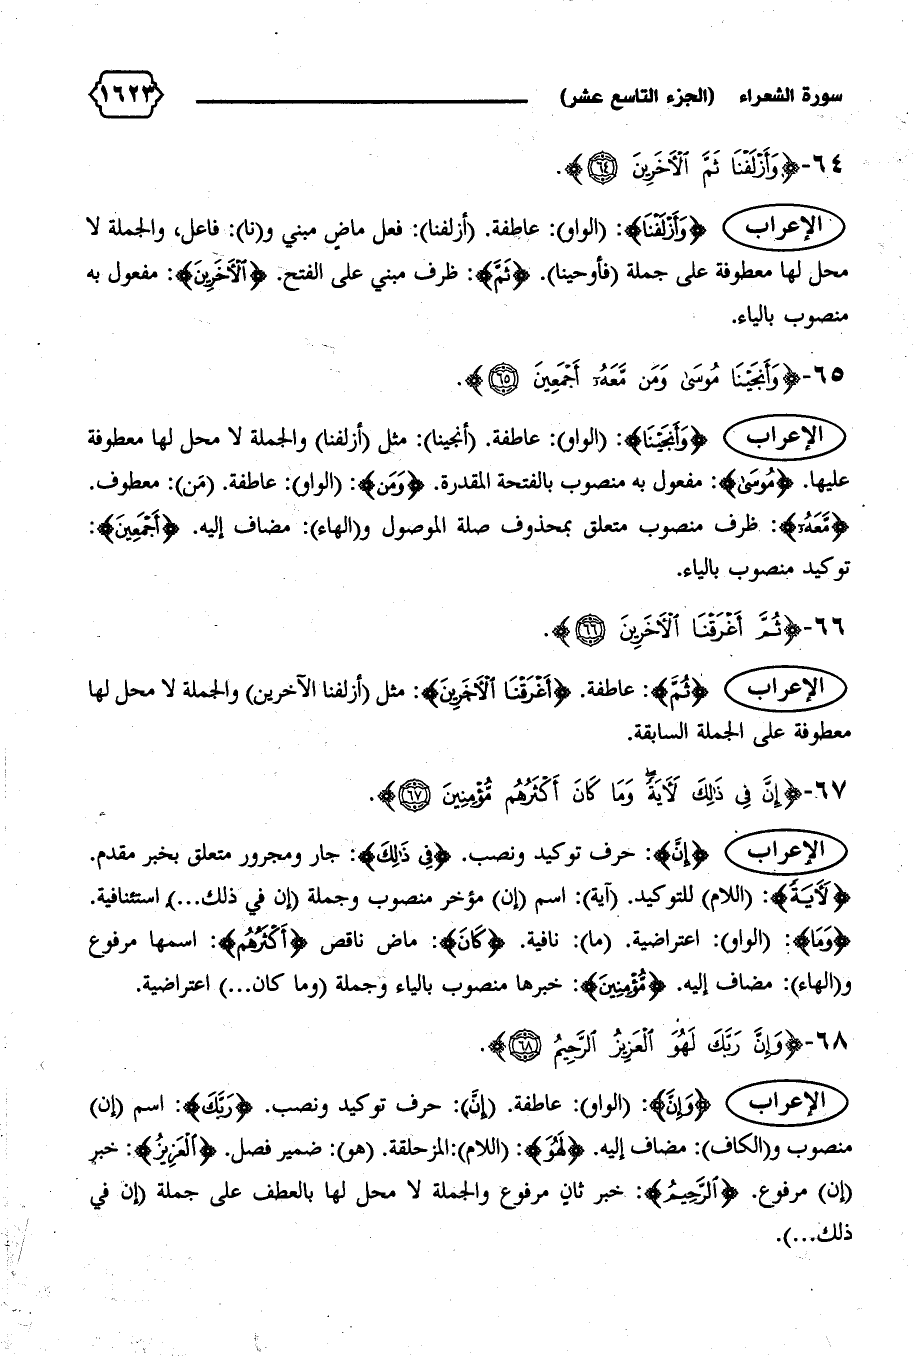 سورة الشعراء (الجزء التاسع عشر) ١٦٢٣
٦٤-﴿وَأَزْلَفْنَا ثَمَّ ٱلْأَخَرِينَ ٦٤﴾.
الإعراب ﴿وَأَزْلَفْنَا﴾: (الواو): عاطفة. (أزلفنا): فعل ماضٍ مبني و(نا): فاعل، والجملة لا
محل لها معطوفة على جملة (فأوحينا). ﴿ثَمَّ﴾: ظرف مبني على الفتح. ﴿ٱلْأَخَرِينَ﴾: مفعول به
منصوب بالياء.
٦٥-﴿وَأَنجَيْنَا مُوسَىٰ وَمَن مَّعَهُۥٓ أَجْمَعِينَ ٦٥﴾.
الإعراب ﴿وَأَنجَيْنَا﴾: (الواو): عاطفة. (أنجينا): مثل (أزلفنا) والجملة لا محل لها معطوفة
عليها. ﴿مُوسَىٰ﴾: مفعول به منصوب بالفتحة المقدرة. ﴿وَمَن﴾: (الواو): عاطفة. (مَن): معطوف.
﴿مَّعَهُۥٓ﴾: ظرف منصوب متعلق بمحذوف صلة الموصول و(الهاء): مضاف إليه. ﴿أَجْمَعِينَ﴾:
توكيد منصوب بالياء.
٦٦-﴿ثُمَّ أَغْرَقْنَا ٱلْأَخَرِينَ ٦٦﴾.
الإعراب ﴿ثُمَّ﴾: عاطفة. ﴿أَغْرَقْنَا ٱلْأَخَرِينَ﴾: مثل (أزلفنا الآخرين) والجملة لا محل لها
معطوفة على الجملة السابقة.
٦٧-﴿إِنَّ فِي ذَٰلِكَ لَأَيَةً ۖ وَمَا كَانَ أَكْثَرُهُم مُّؤْمِنِينَ ٦٧﴾.
الإعراب ﴿إِنَّ﴾: حرف توكيد ونصب. ﴿فِي ذَٰلِكَ﴾: جار ومجرور متعلق بخبر مقدم.
﴿لَأَيَةً﴾: (اللام) للتوكيد. (آية): اسم (إن) مؤخر منصوب وجملة (إن في ذلك...)، استئنافية.
﴿وَمَا﴾: (الواو): اعتراضية. (ما): نافية. ﴿كَانَ﴾: ماض ناقص ﴿أَكْثَرُهُم﴾: اسمها مرفوع
و(الهاء): مضاف إليه. ﴿مُّؤْمِنِينَ﴾: خبرها منصوب بالياء وجملة (وما كان...) اعتراضية.
٦٨-﴿وَإِنَّ رَبَّكَ لَهُوَ ٱلْعَزِيزُ ٱلرَّحِيمُ ٦٨﴾.
الإعراب ﴿وَإِنَّ﴾: (الواو): عاطفة. (إنَّ): حرف توكيد ونصب. ﴿رَبَّكَ﴾: اسم (إن)
منصوب و(الكاف): مضاف إليه. ﴿لَهُوَ﴾: (اللام):المزحلقة. (هو): ضمير فصل. ﴿ٱلْعَزِيزُ﴾: خبر
(إن) مرفوع. ﴿ٱلرَّحِيمُ﴾: خبر ثانٍ مرفوع والجملة لا محل لها بالعطف على جملة (إن في
ذلك...).